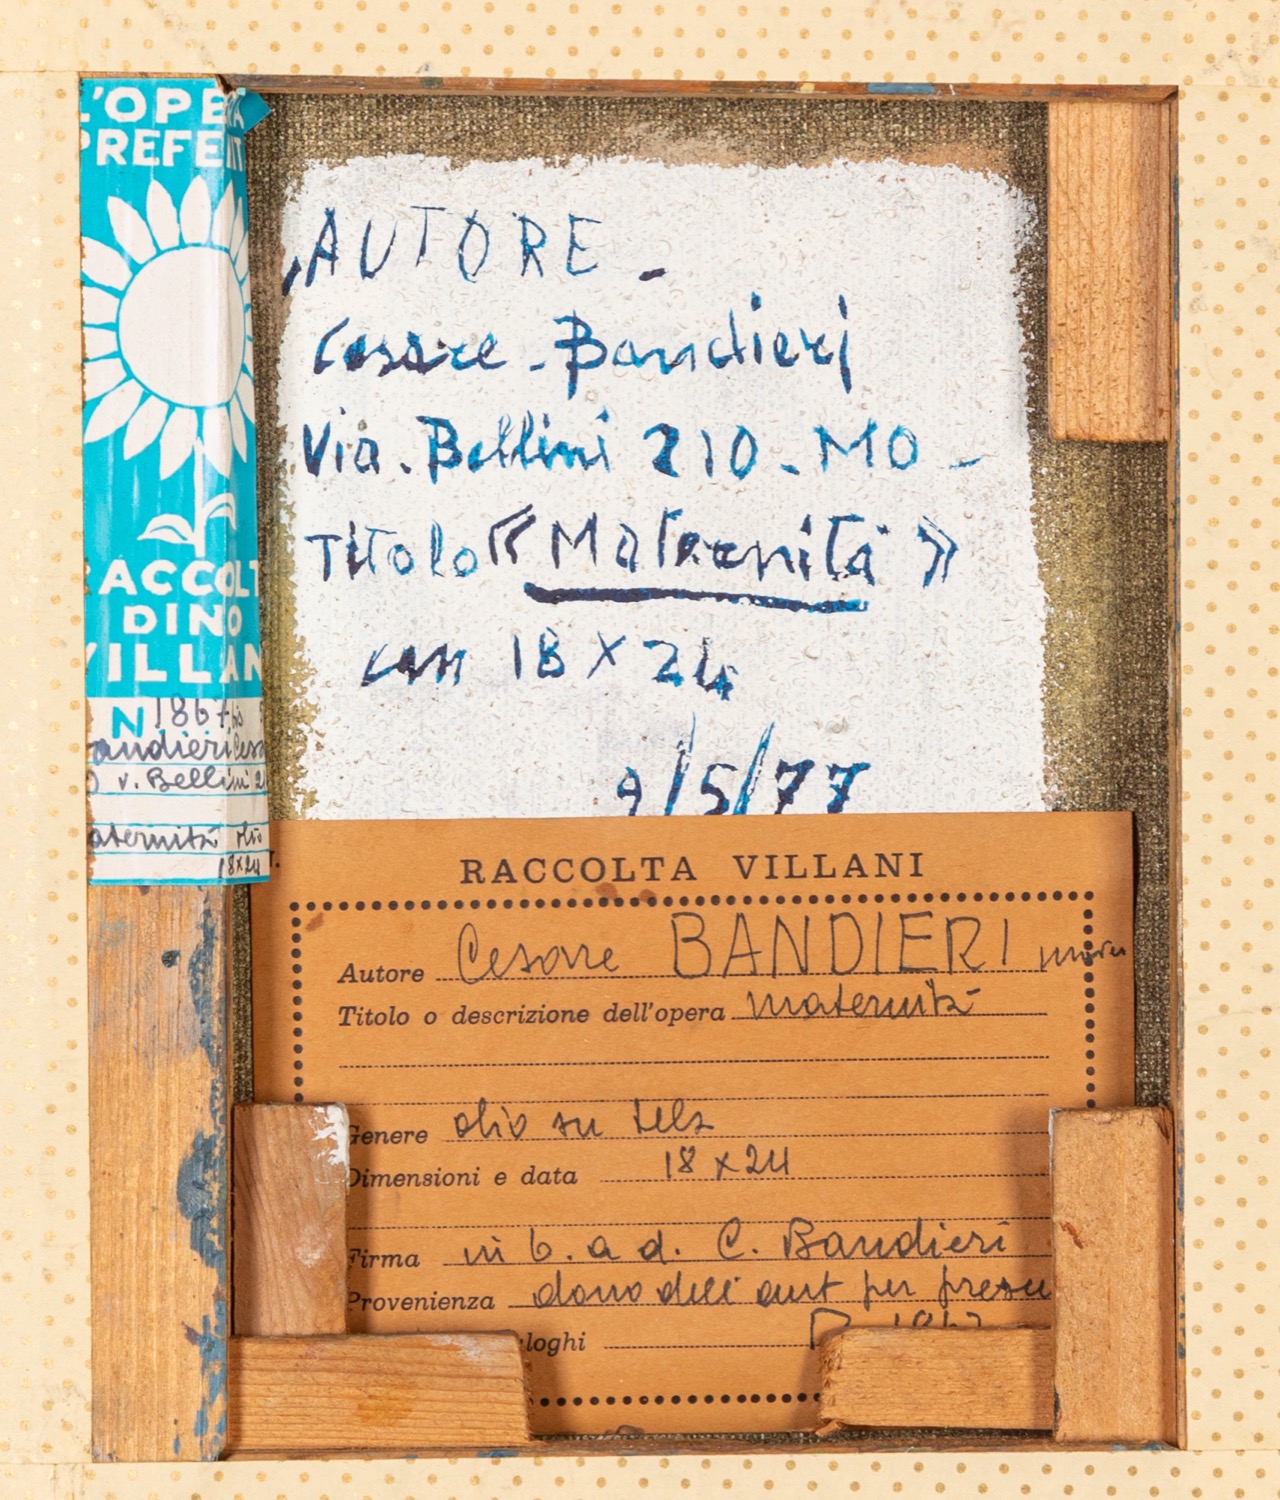 L'OPERA
PREFERIT
RACCOLT
DINO
VILLAN
N 1867 bis
andieri Cesa
v. Bellini 2
aternità olio
18x24
AUTORE -
Cesare - Bandieri
Via. Bellini 210 - MO -
Titolo « Maternità »
cm 18 x 24
9/5/77
RACCOLTA VILLANI
Autore Cesare BANDIERI
Titolo o descrizione dell'opera maternità
Genere olio su tela
Dimensioni e data 18 x 24
Firma in b. a d. C. Bandieri
Provenienza dono dell' aut per
loghi